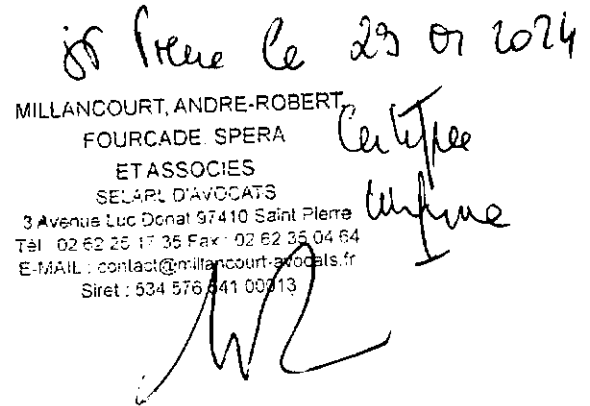 St Pierre le 29 01 2024
MILLANCOURT, ANDRE-ROBERT,
FOURCADE. SPERA
ET ASSOCIES
SELARL D'AVOCATS
3 Avenue Luc Donat 97410 Saint Pierre
Tél : 02 62 25 17 35 Fax : 02 62 35 04 64
E-MAIL : contact@millancourt-avocats.fr
Siret : 534 576 641 00013
Certifiée
conforme